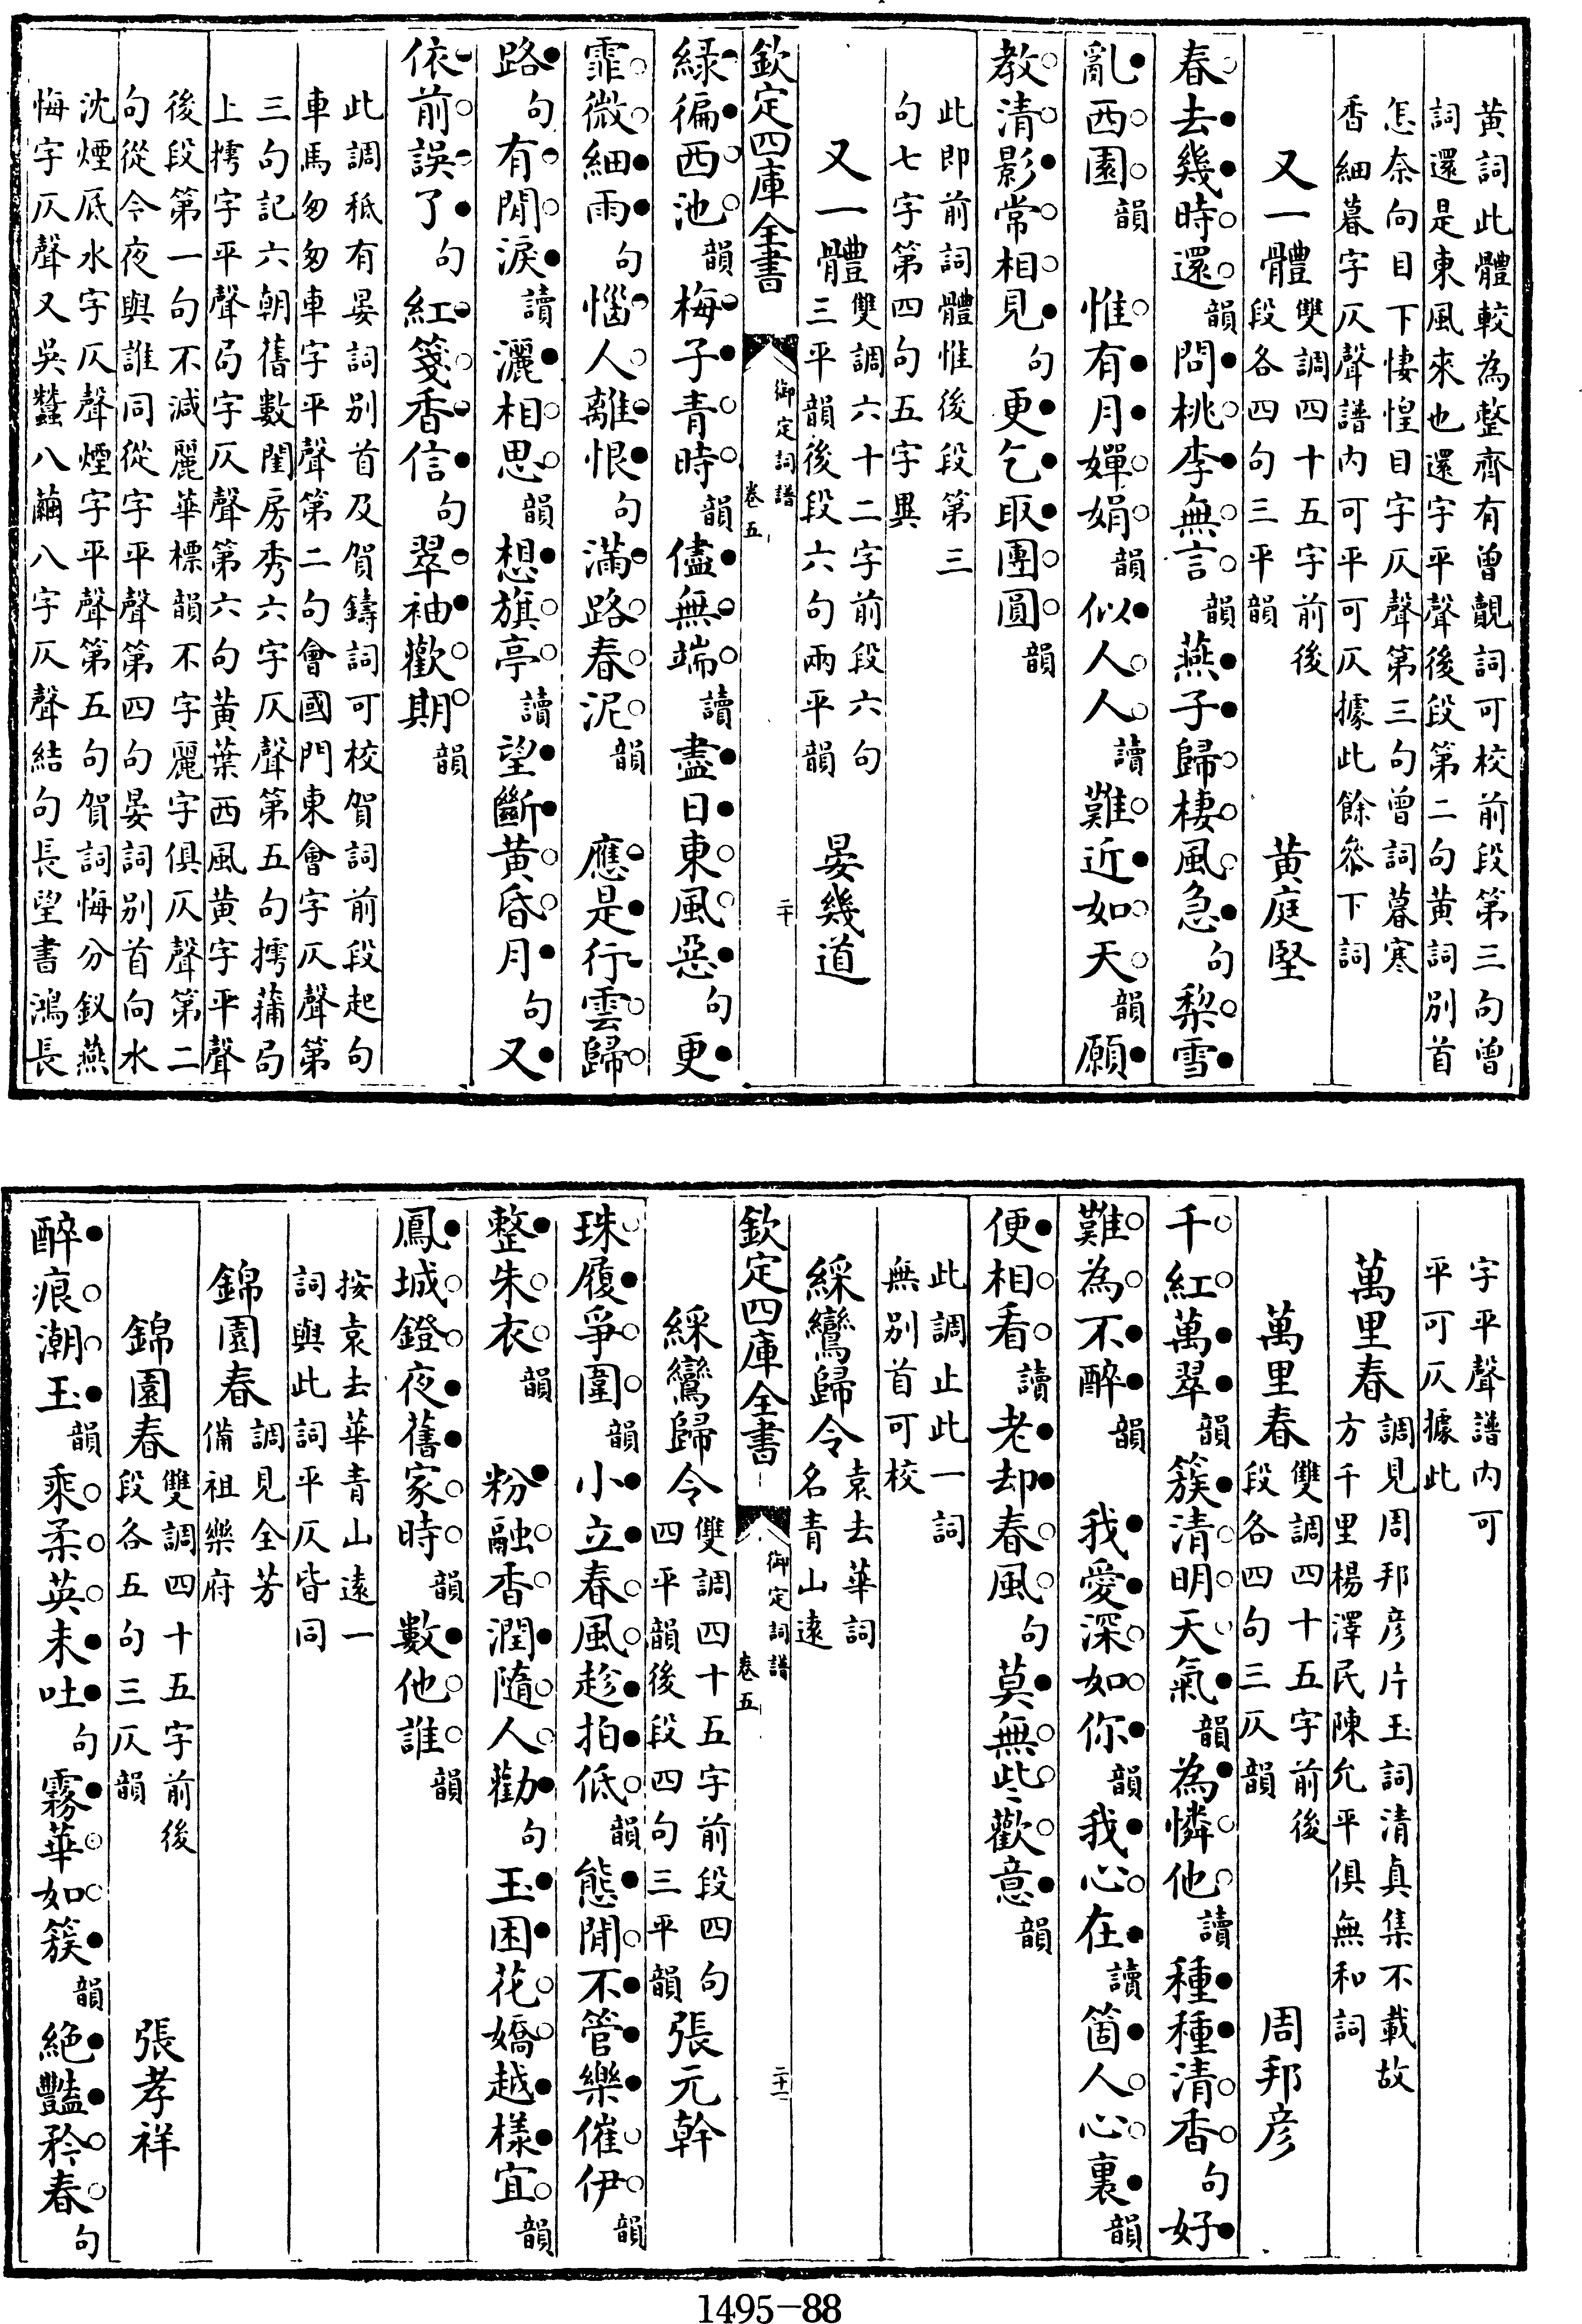 黄詞此體較為整齊有曾覿詞可校前段第三句曾
詞還是東風來也還字平聲後段第二句黄詞別首
怎奈向目下悽惶目字仄聲第三句曾詞暮寒
香細暮字仄聲譜内可平可仄據此餘叅下詞
又一體 雙調四十五字前後段各四句三平韻 黄庭堅
春去幾時還韻問桃李無言韻燕子歸棲風急句梨雪
亂西園韻 惟有月嬋娟韻似人人讀難近如天韻願
教清影常相見句更乞取團圓韻
此即前詞體惟後段第三
句七字第四句五字異
又一體 雙調六十二字前段六句三平韻後段六句兩平韻 晏幾道
欽定四庫全書 御定詞譜 卷五 二十
緑徧西池韻梅子青時韻儘無端讀盡日東風惡句更
霏微細雨句惱人離恨句滿路春泥韻 應是行雲歸
路句有閒淚讀灑相思韻想旗亭讀望斷黄昏月句又
依前誤了句紅箋香信句翠袖歡期韻
此調秪有晏詞别首及賀鑄詞可校賀詞前段起句
車馬匆匆車字平聲第二句會國門東會字仄聲第
三句記六朝舊數閨房秀六字仄聲第五句摴蒱局
上摴字平聲局字仄聲第六句黄葉西風黄字平聲
後段第一句不減麗華標韻不字麗字俱仄聲第二
句從今夜與誰同從字平聲第四句晏詞別首向水
沈煙底水字仄聲煙字平聲第五句賀詞悔分釵燕
悔字仄聲又吳蠶八繭八字仄聲結句長望書鴻長
字平聲譜内可
平可仄據此
萬里春 調見周邦彦片玉詞清真集不載故方千里楊澤民陳允平俱無和詞
萬里春 雙調四十五字前後段各四句三仄韻 周邦彦
千紅萬翠韻簇清明天氣韻為憐他讀種種清香句好
難為不醉韻 我愛深如你韻我心在讀箇人心裏韻
便相看讀老却春風句莫無些歡意韻
此調止此一詞
無別首可校
綵鸞歸令 袁去華詞名青山遠
欽定四庫全書 御定詞譜 卷五 二十一
綵鸞歸令 雙調四十五字前段四句四平韻後段四句三平韻 張元幹
珠履爭圍韻小立春風趁拍低韻態閒不管樂催伊韻
整朱衣韻 粉融香潤隨人勸句玉困花嬌越樣宜韻
鳳城鐙夜舊家時韻數他誰韻
按袁去華青山遠一
詞與此詞平仄皆同
錦園春 調見全芳備祖樂府
錦園春 雙調四十五字前後段各五句三仄韻 張孝祥
醉痕潮玉韻乘柔英未吐句霧華如簇韻絶豔矜春句
1495-88